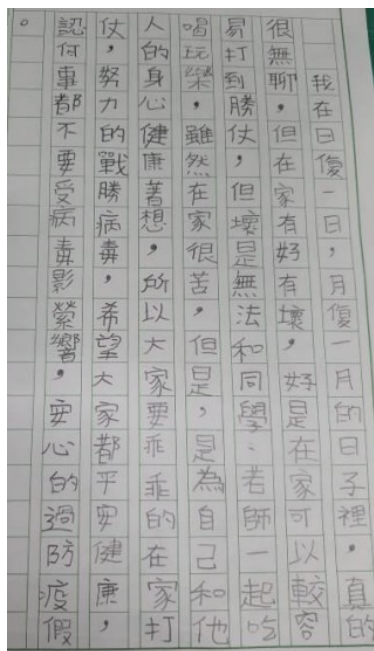 我在日復一日，月復一月的日子裡，真的
很無聊，但在家有好有壞，好是在家可以較容
易打到勝仗，但壞是無法和同學、老師一起吃
喝玩樂，雖然在家很苦，但是，是為自己和他
人的身心健康著想，所以大家要乖乖的在家打
仗，努力的戰勝病毒，希望大家都平安健康，
認何事都不要受病毒影縈響，安心的過防疫假
。